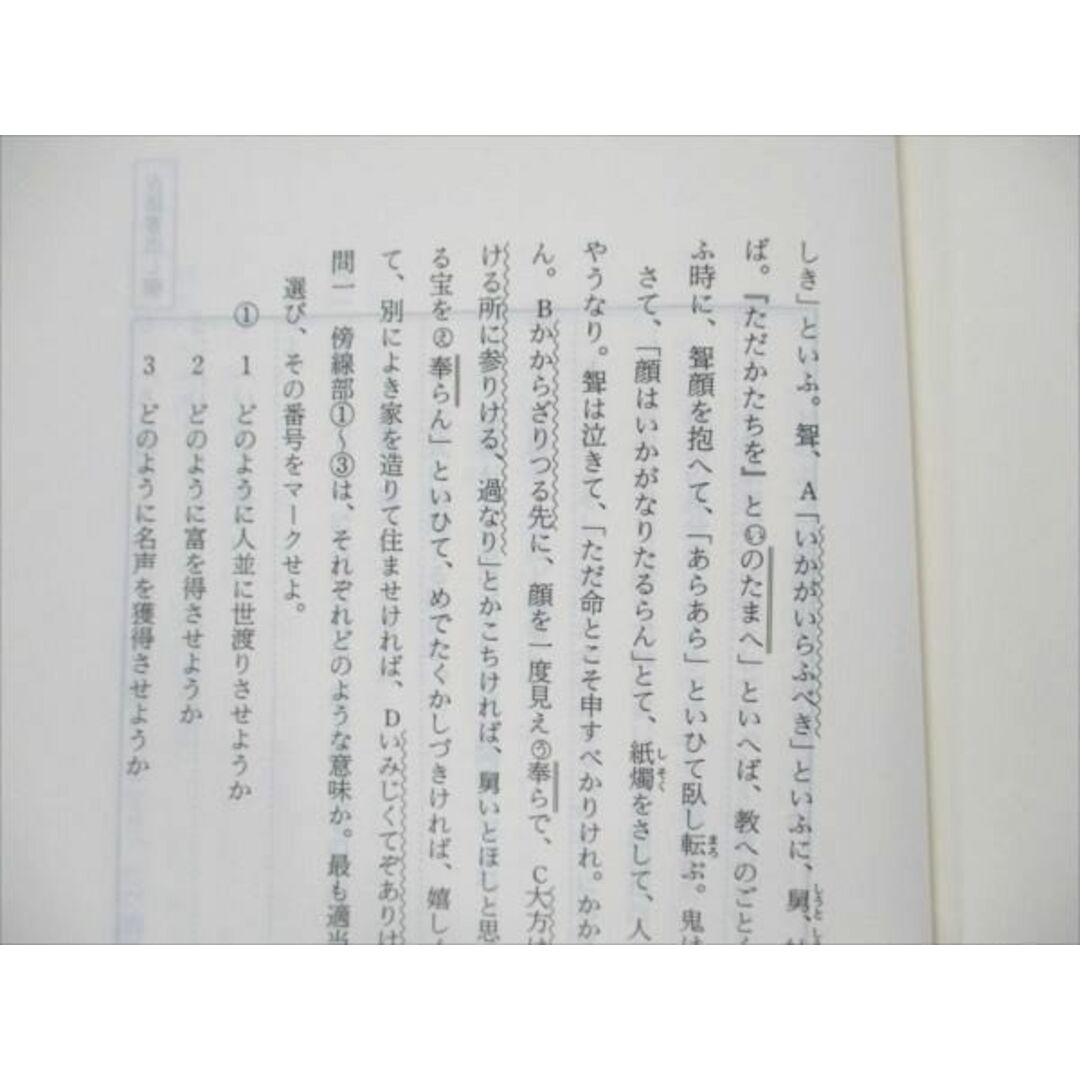 しき」といふ。聟、A「いかがいらふべき」といふに、舅、
ば。『ただかたちを』と㋑のたまへ」といへば、教へのごとく
ふ時に、聟顔を抱へて、「あらあら」といひて臥し転ぶ。鬼は
さて、「顔はいかがなりたるらん」とて、紙燭をさして、人
やうなり。聟は泣きて、「ただ命とこそ申すべかりけれ。かか
ん。Bかからざりつる先に、顔を一度見え㋒奉らで、C大方は
ける所に参りける、過なり」とかこちければ、舅いとほしと思
る宝を㋓奉らん」といひて、めでたくかしづきければ、嬉しく
て、別によき家を造りて住ませければ、Dいみじくてぞありけ
問一 傍線部①～③は、それぞれどのような意味か。最も適当
選び、その番号をマークせよ。
① 1 どのように人並に世渡りさせようか
2 どのように富を得させようか
3 どのように名声を獲得させようか